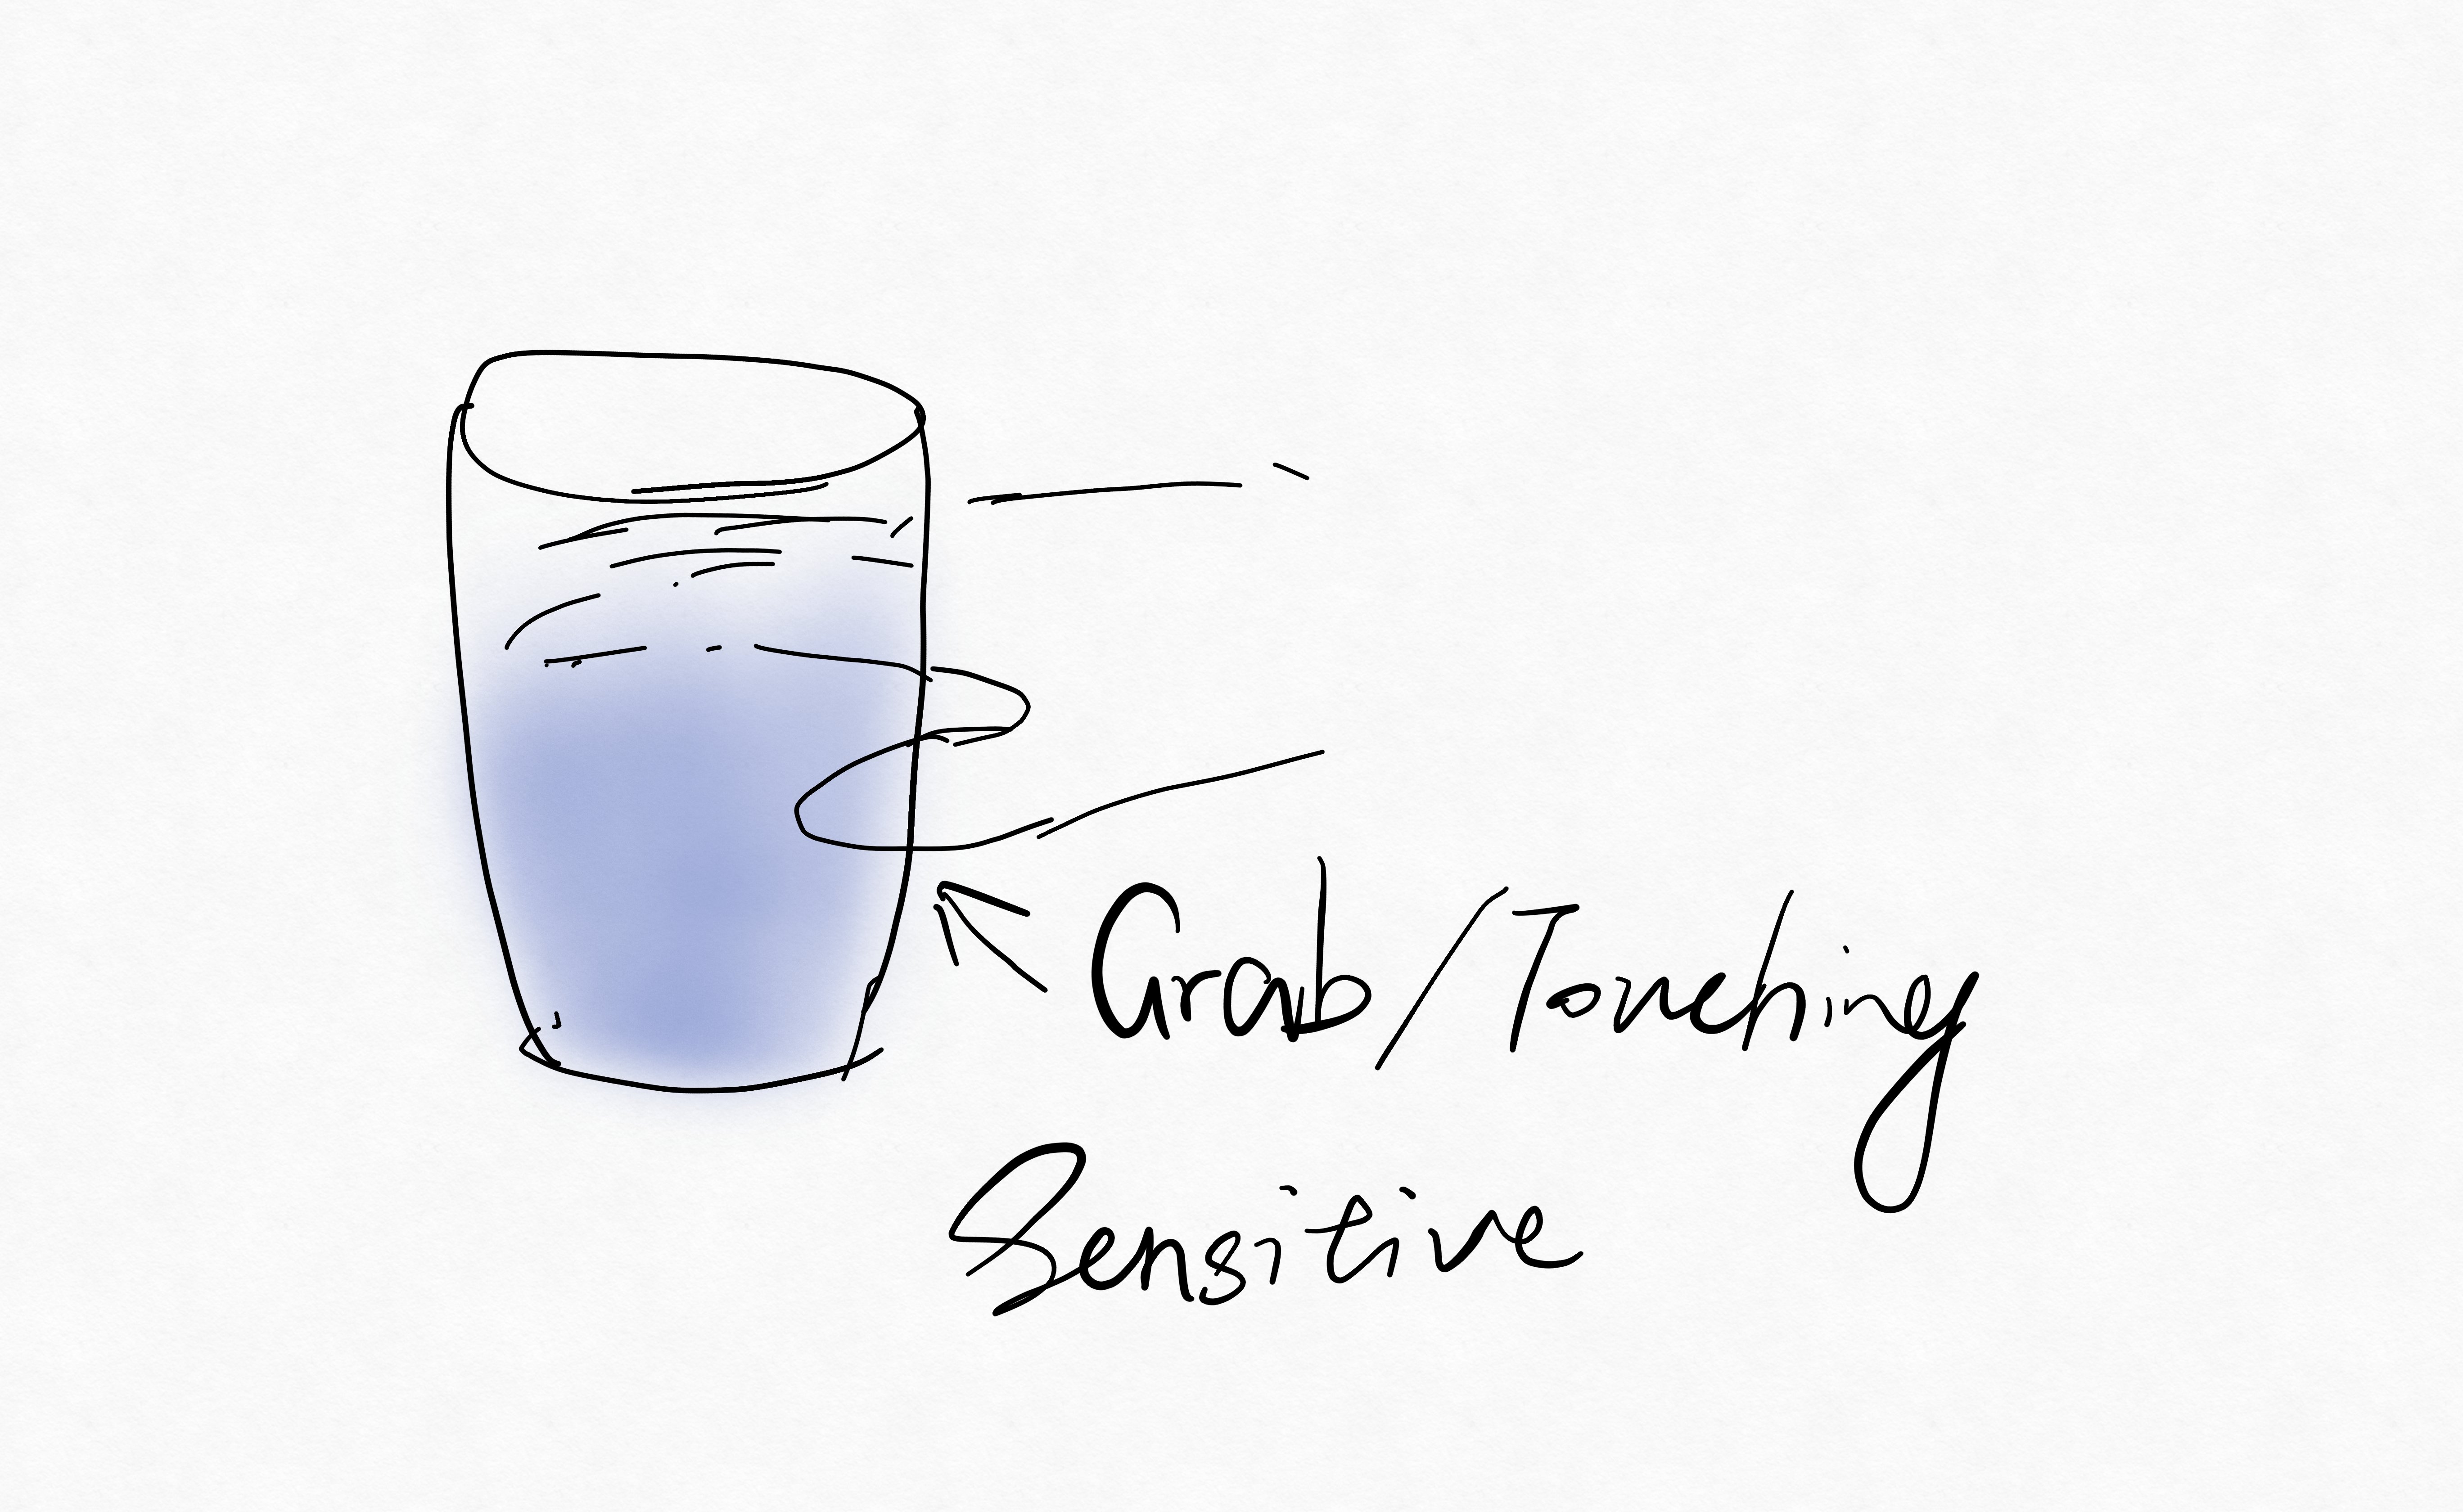 Grab/Touching
Sensitive